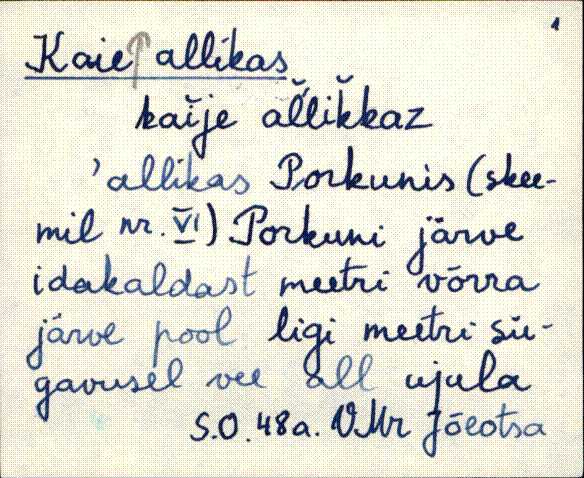 1
Kaie↑allikas
kaĭje al̆lik̆kaz
'allikas Porkunis (skee-
mil nr. VI) Porkuni järve
idakaldast meetri võrra
järve pool ligi meetri sü-
gavusel vee all ujula
S.O. 48a. VMr Jõeotsa